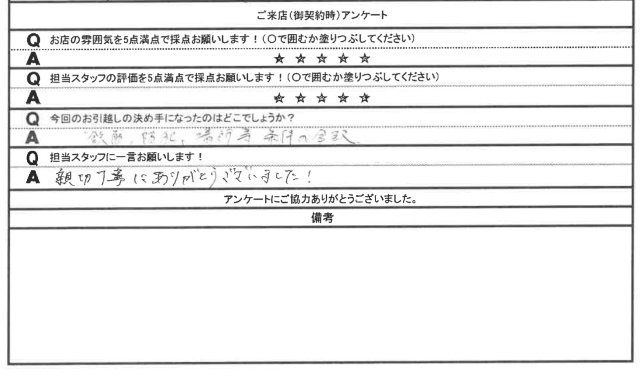 ご来店(御契約時)アンケート
Q お店の雰囲気を5点満点で採点お願いします!(〇で囲むか塗りつぶしてください)
A ☆ ☆ ☆ ☆ ☆
Q 担当スタッフの評価を5点満点で採点お願いします!(〇で囲むか塗りつぶしてください)
A ☆ ☆ ☆ ☆ ☆
Q 今回のお引越しの決め手になったのはどこでしょうか?
A 防犯, 場所等 条件の
Q 担当スタッフに一言お願いします!
A 親切丁寧にありがとうございました!
アンケートにご協力ありがとうございました。
備考